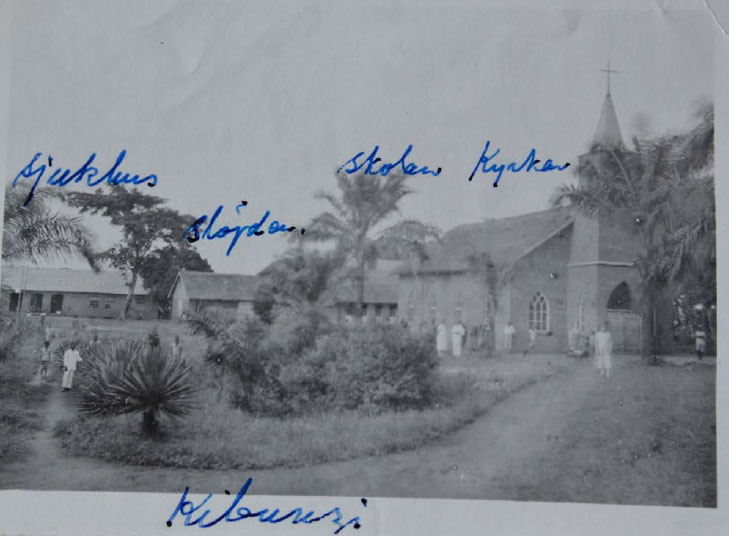 sjukhus
slöjden.
skolan
Kyrkan
Kibunzi